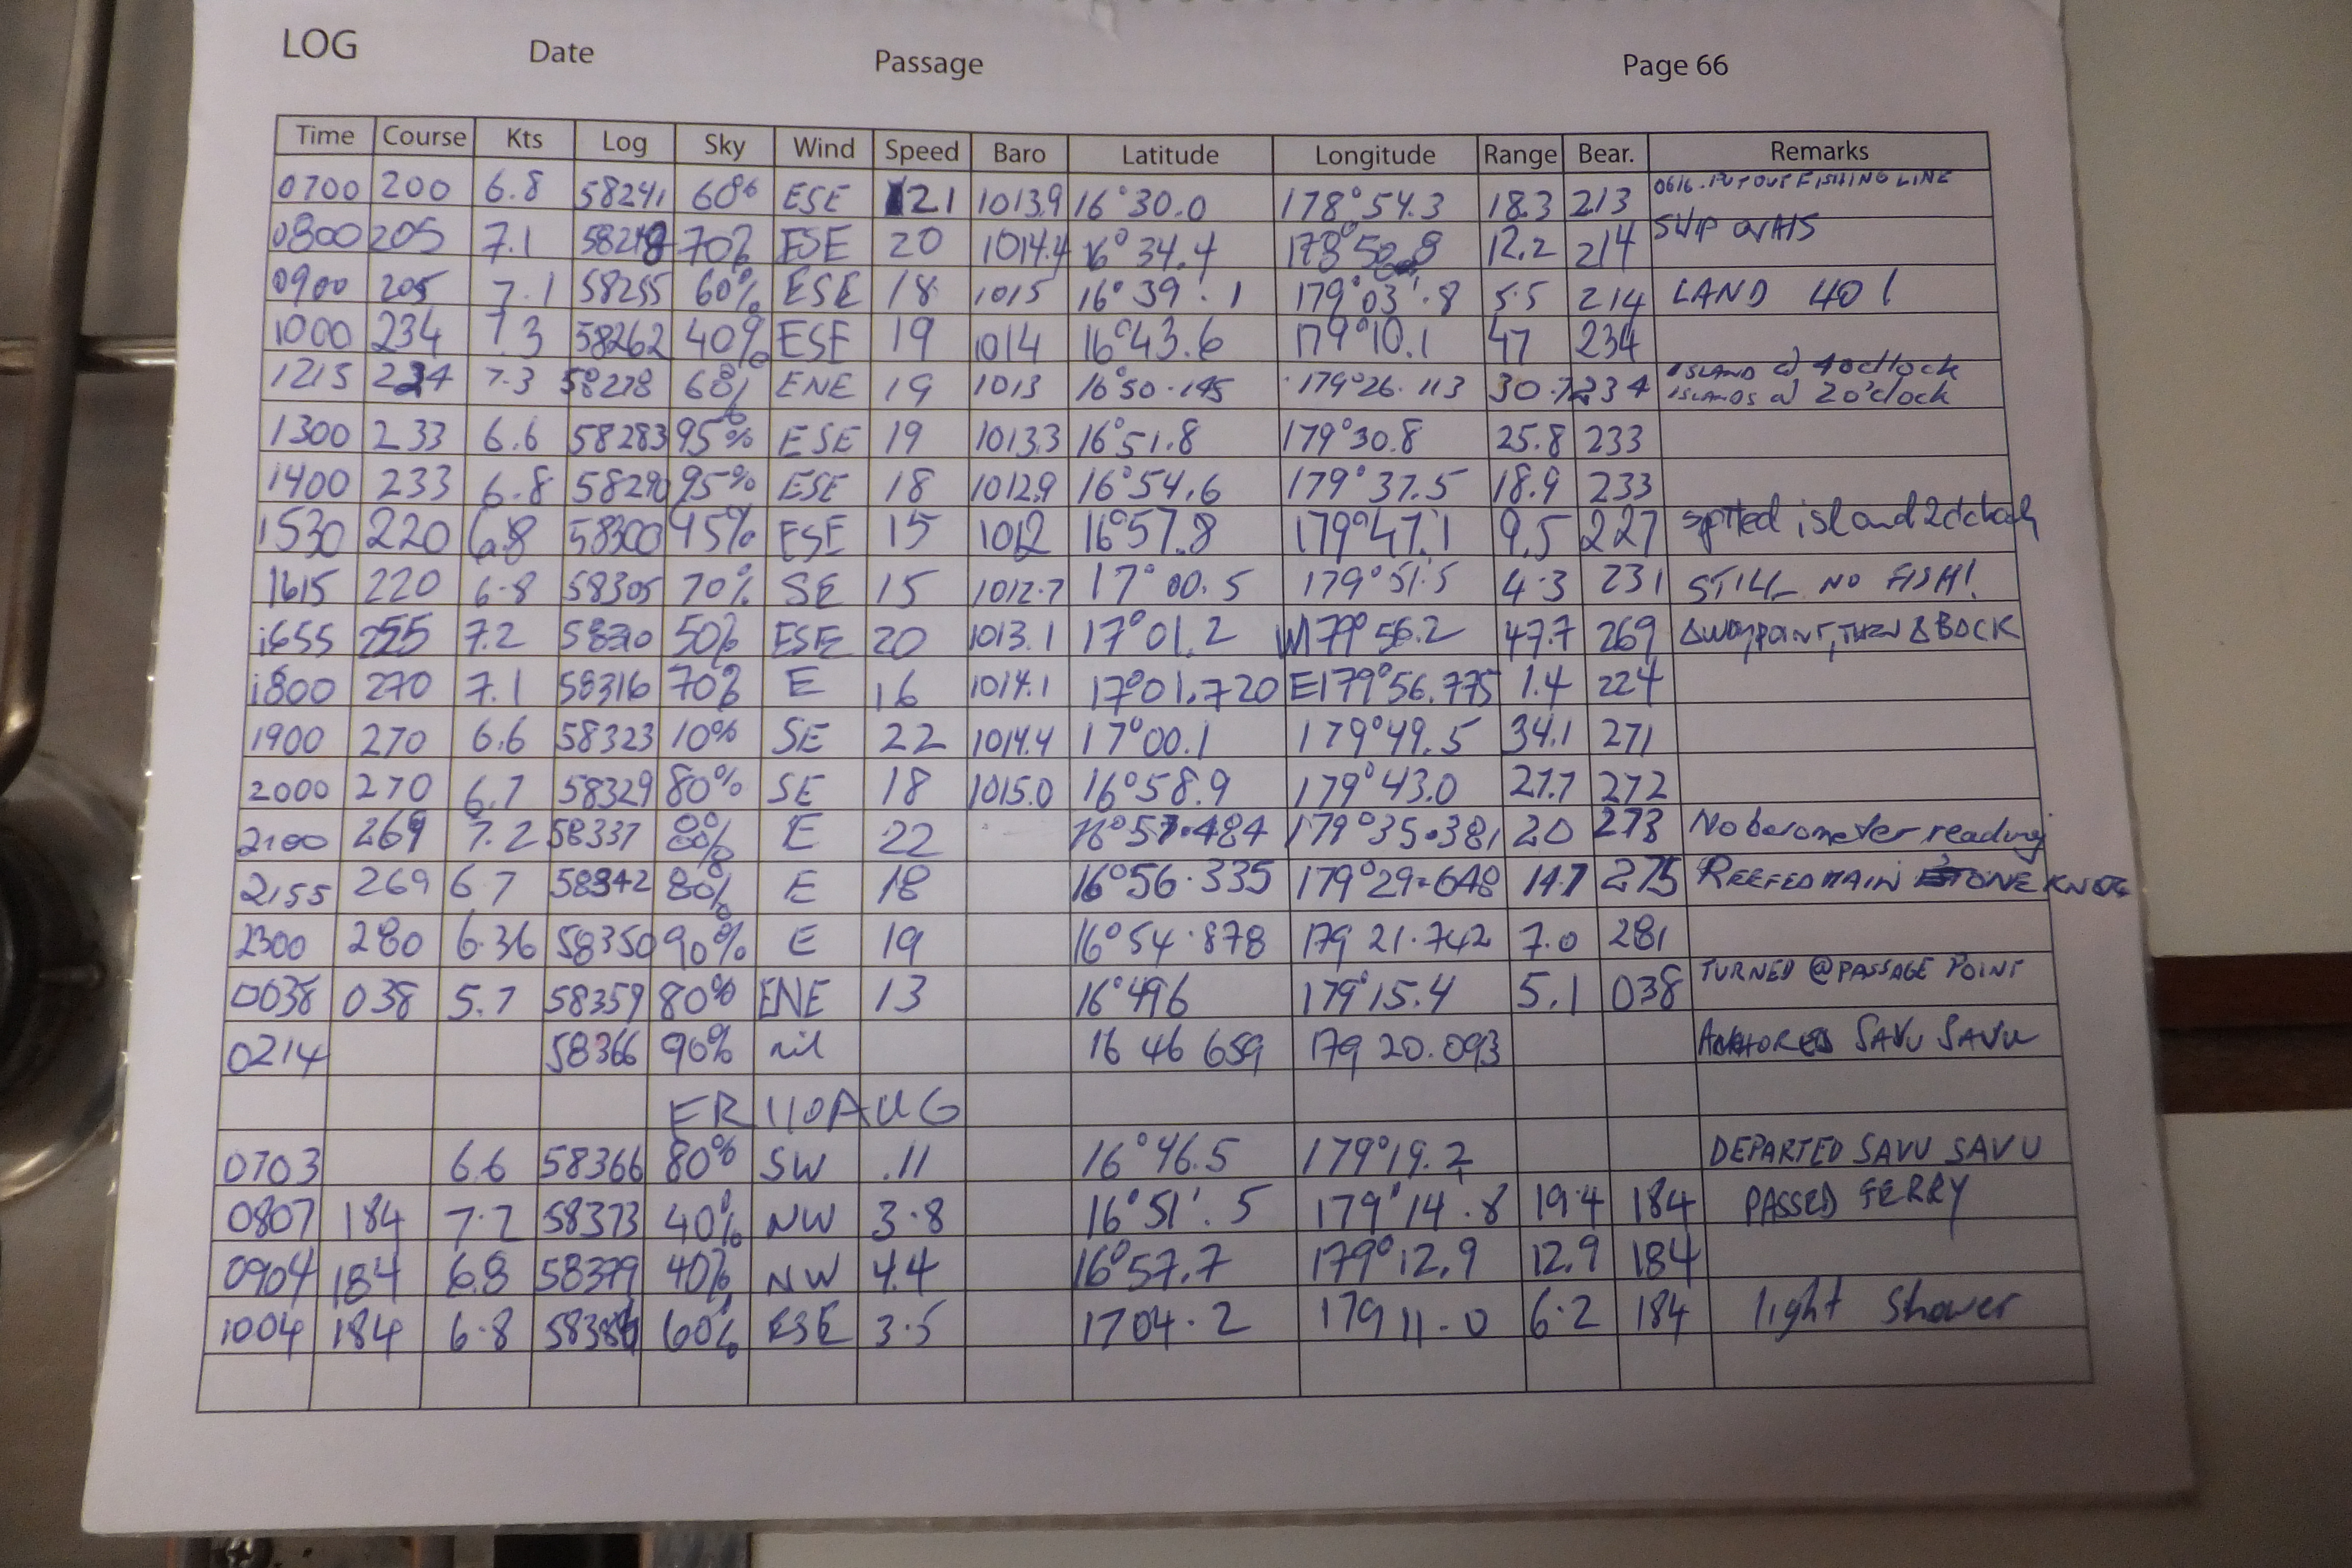 LOG Date Passage Page 66
Time Course Kts Log Sky Wind Speed Baro Latitude Longitude Range Bear. Remarks
0700 200 6.8 58241 60% ESE 21 1013.9 16°30.0 178°54.3 18.3 213 0616. PUT OUT FISHING LINE
0800 205 7.1 58248 70% ESE 20 1014.4 16°34.4 12.2 214 SHIP ON AIS
0900 205 7.1 58255 60% ESE 18 1015 16°39'.1 179°03'.8 5.5 214 LAND HO!
1000 234 7.3 58262 40% ESE 19 1014 16°43.6 179°10.1 47 234
1215 234 7.3 58278 60% ENE 19 1013 16°50.195 179°26.113 30.7 234 ISLAND @ 4 o'clock
ISLANDS @ 2 o'clock
1300 233 6.6 58283 95% ESE 19 1013.3 16°51.8 179°30.8 25.8 233
1400 233 6.8 58290 95% ESE 18 1012.9 16°54.6 179°37.5 18.9 233
1530 220 6.8 58300 45% ESE 15 1012 16°57.8 179°47.1 9.5 227 spotted island 2o'clock
1615 220 6.8 58305 70% SE 15 1012.7 17°00.5 179°51.5 4.3 231 STILL NO FISH!
1655 255 7.2 58310 50% ESE 20 1013.1 17°01.2 W179°56.2 47.7 269 ΔWAYPOINT, THEN Δ BACK
1800 270 7.1 58316 70% E 16 1014.1 17°01.720 E179°56.775 1.4 224
1900 270 6.6 58323 10% SE 22 1014.4 17°00.1 179°49.5 34.1 271
2000 270 6.7 58329 80% SE 18 1015.0 16°58.9 179°43.0 27.7 272
2100 269 7.2 58337 80% E 22 16°57.484 179°35.381 20 273 No barometer reading
2155 269 6.7 58342 80% E 18 16°56.335 179°29.648 14.7 275 REEFED MAIN ONE KNOT
2300 280 6.36 58350 90% E 19 16°54.878 179 21.742 7.0 281
0038 038 5.7 58359 80% ENE 13 16°496 179°15.4 5.1 038 TURNED @ PASSAGE POINT
0214 58366 90% nil 16 46 659 179 20.093 ANCHORED SAVU SAVU
FRI 10 AUG
0703 6.6 58366 80% SW .11 16°46.5 179°19.2 DEPARTED SAVU SAVU
0807 184 7.2 58373 40% NW 3.8 16°51'.5 179°14'.8 19.4 184 PASSED FERRY
0904 184 6.8 58379 40% NW 4.4 16°57.7 179°12.9 12.9 184
1004 184 6.8 58386 60% ESE 3.5 1704.2 179 11.0 6.2 184 light shower